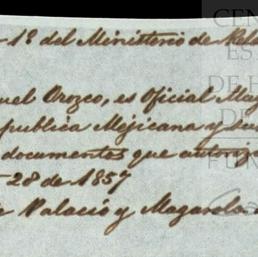 1º del Ministerio de Rela
uel Orozco, es Oficial May
publica Mejicana y su
documentos que autoriza
28 de 1857
Palacio y Magarola